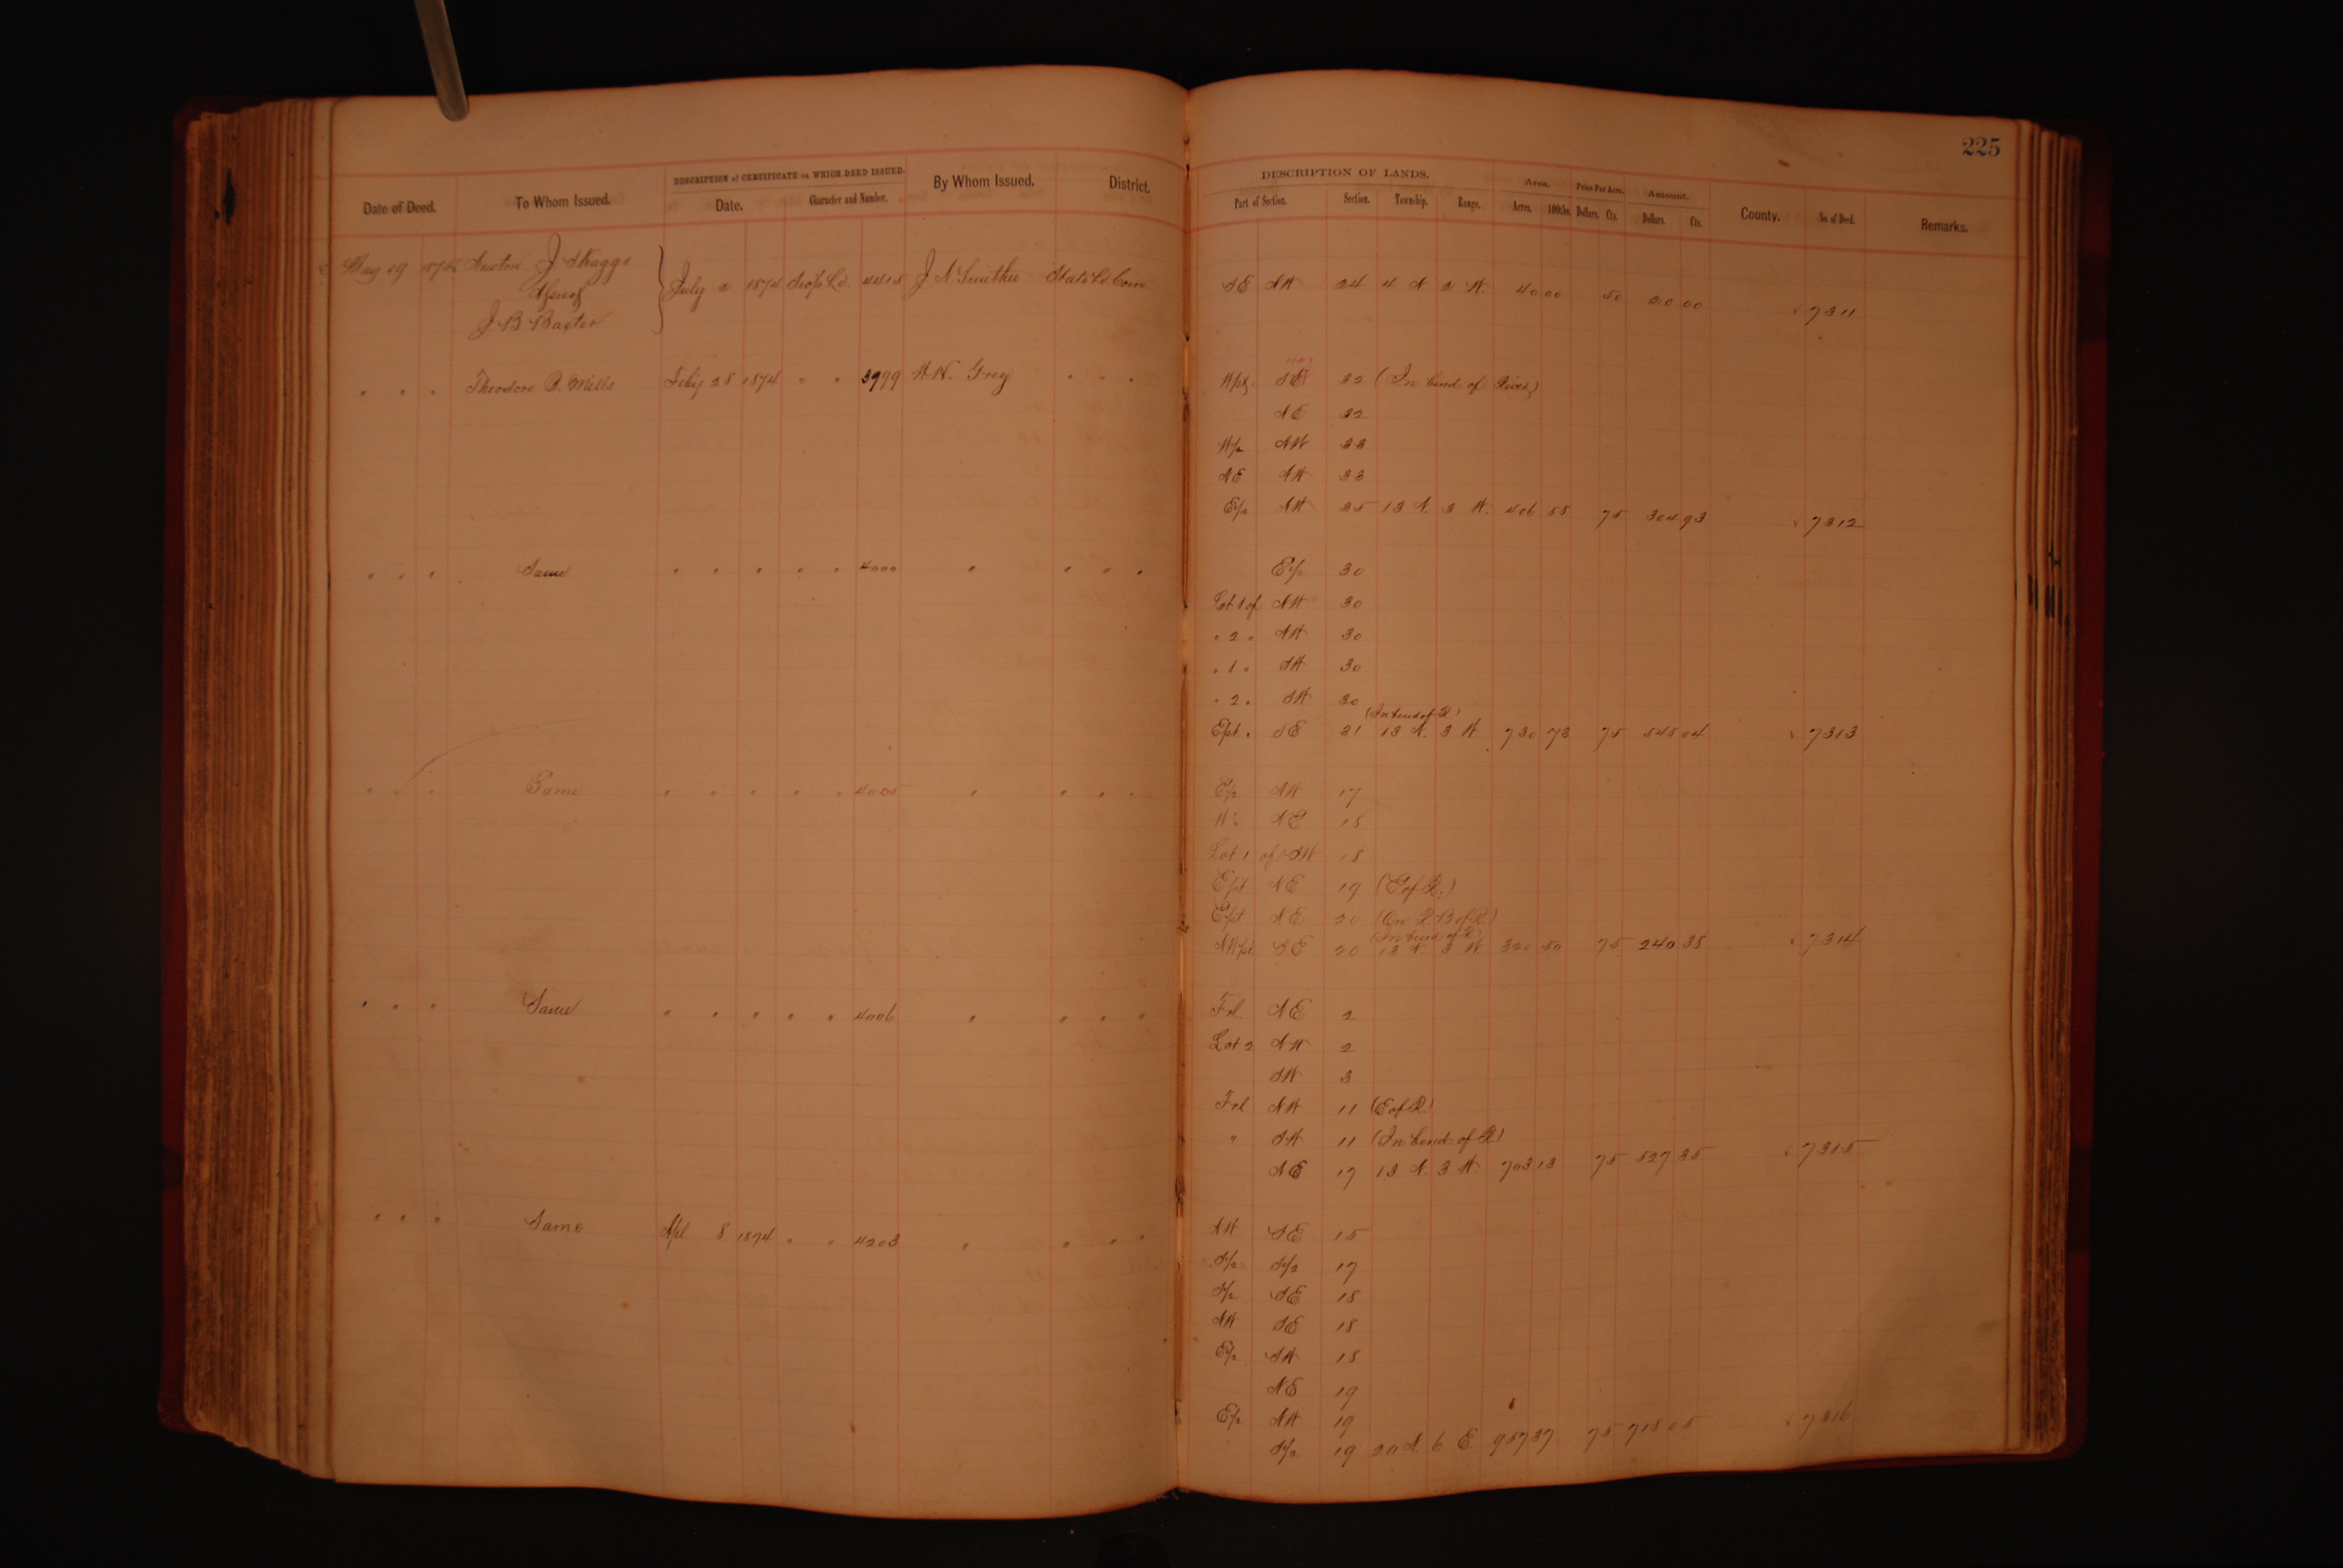 225
DESCRIPTION of CERTIFICATE on WHICH DEED ISSUED.
Date of Deed. To Whom Issued. Date. Character and Number. By Whom Issued. District.
DESCRIPTION OF LANDS. Area. Price Per Acre. Amount.
Part of Section. Section. Township. Range. Acres. 100ths. Dollars. Cts. Dollars. Cts. County. No. of Deed. Remarks.
May 19 1875 J Skaggs July 2 1874 4415 J. N. Smithee State Ld Com. SE NW 24 4 N. 2 W. 40 00 50 20 00 7311
J B Baxter
" " " Theodore B. Mills Feb'y 28 1874 " " 3999 W. W. Grey " " " Wpt SE 32 (In bend of River)
NE 32
W/2 NW 33
NE NW 33
E/2 NW 35 13 N. 3 W. 406 58 75 304 93 7312
" " " Same " " " " " 4000 " " " " E/2 30
Lot 1 of NW 30
" 2 " NW 30
" 1 " SW 30
" 2 " SW 30
(In bend of R)
Ept. " SE 31 13 N. 3 W 730 73 75 548 04 7313
" " " Same " " " " " 4005 " " " " E/2 NW 17
W/2 NE 18
Lot 1 of SW 18
Ept NE 19 (E of R.)
Ept NE 20 (On R B of R.)
(In bend of R)
NWpt SE 20 13 N. 3 W. 320 50 75 240 38 7314
" " " Same " " " " " 4006 " " " " Frl. NE 2
Lot 2 NW 2
SW 3
Frl NW 11 (E of R.)
" SW 11 (In bend of R)
NE 17 13 N. 3 W. 703 13 75 527 35 7315
" " " Same Apl 8 1874 " " 4203 " " " " NW SE 15
S/2 S/2 17
S/2 SE 18
NW SE 18
E/2 SW 18
NE 19
E/2 NW 19
S/2 19 20 N. 6 E. 957 37 75 718 05 7316